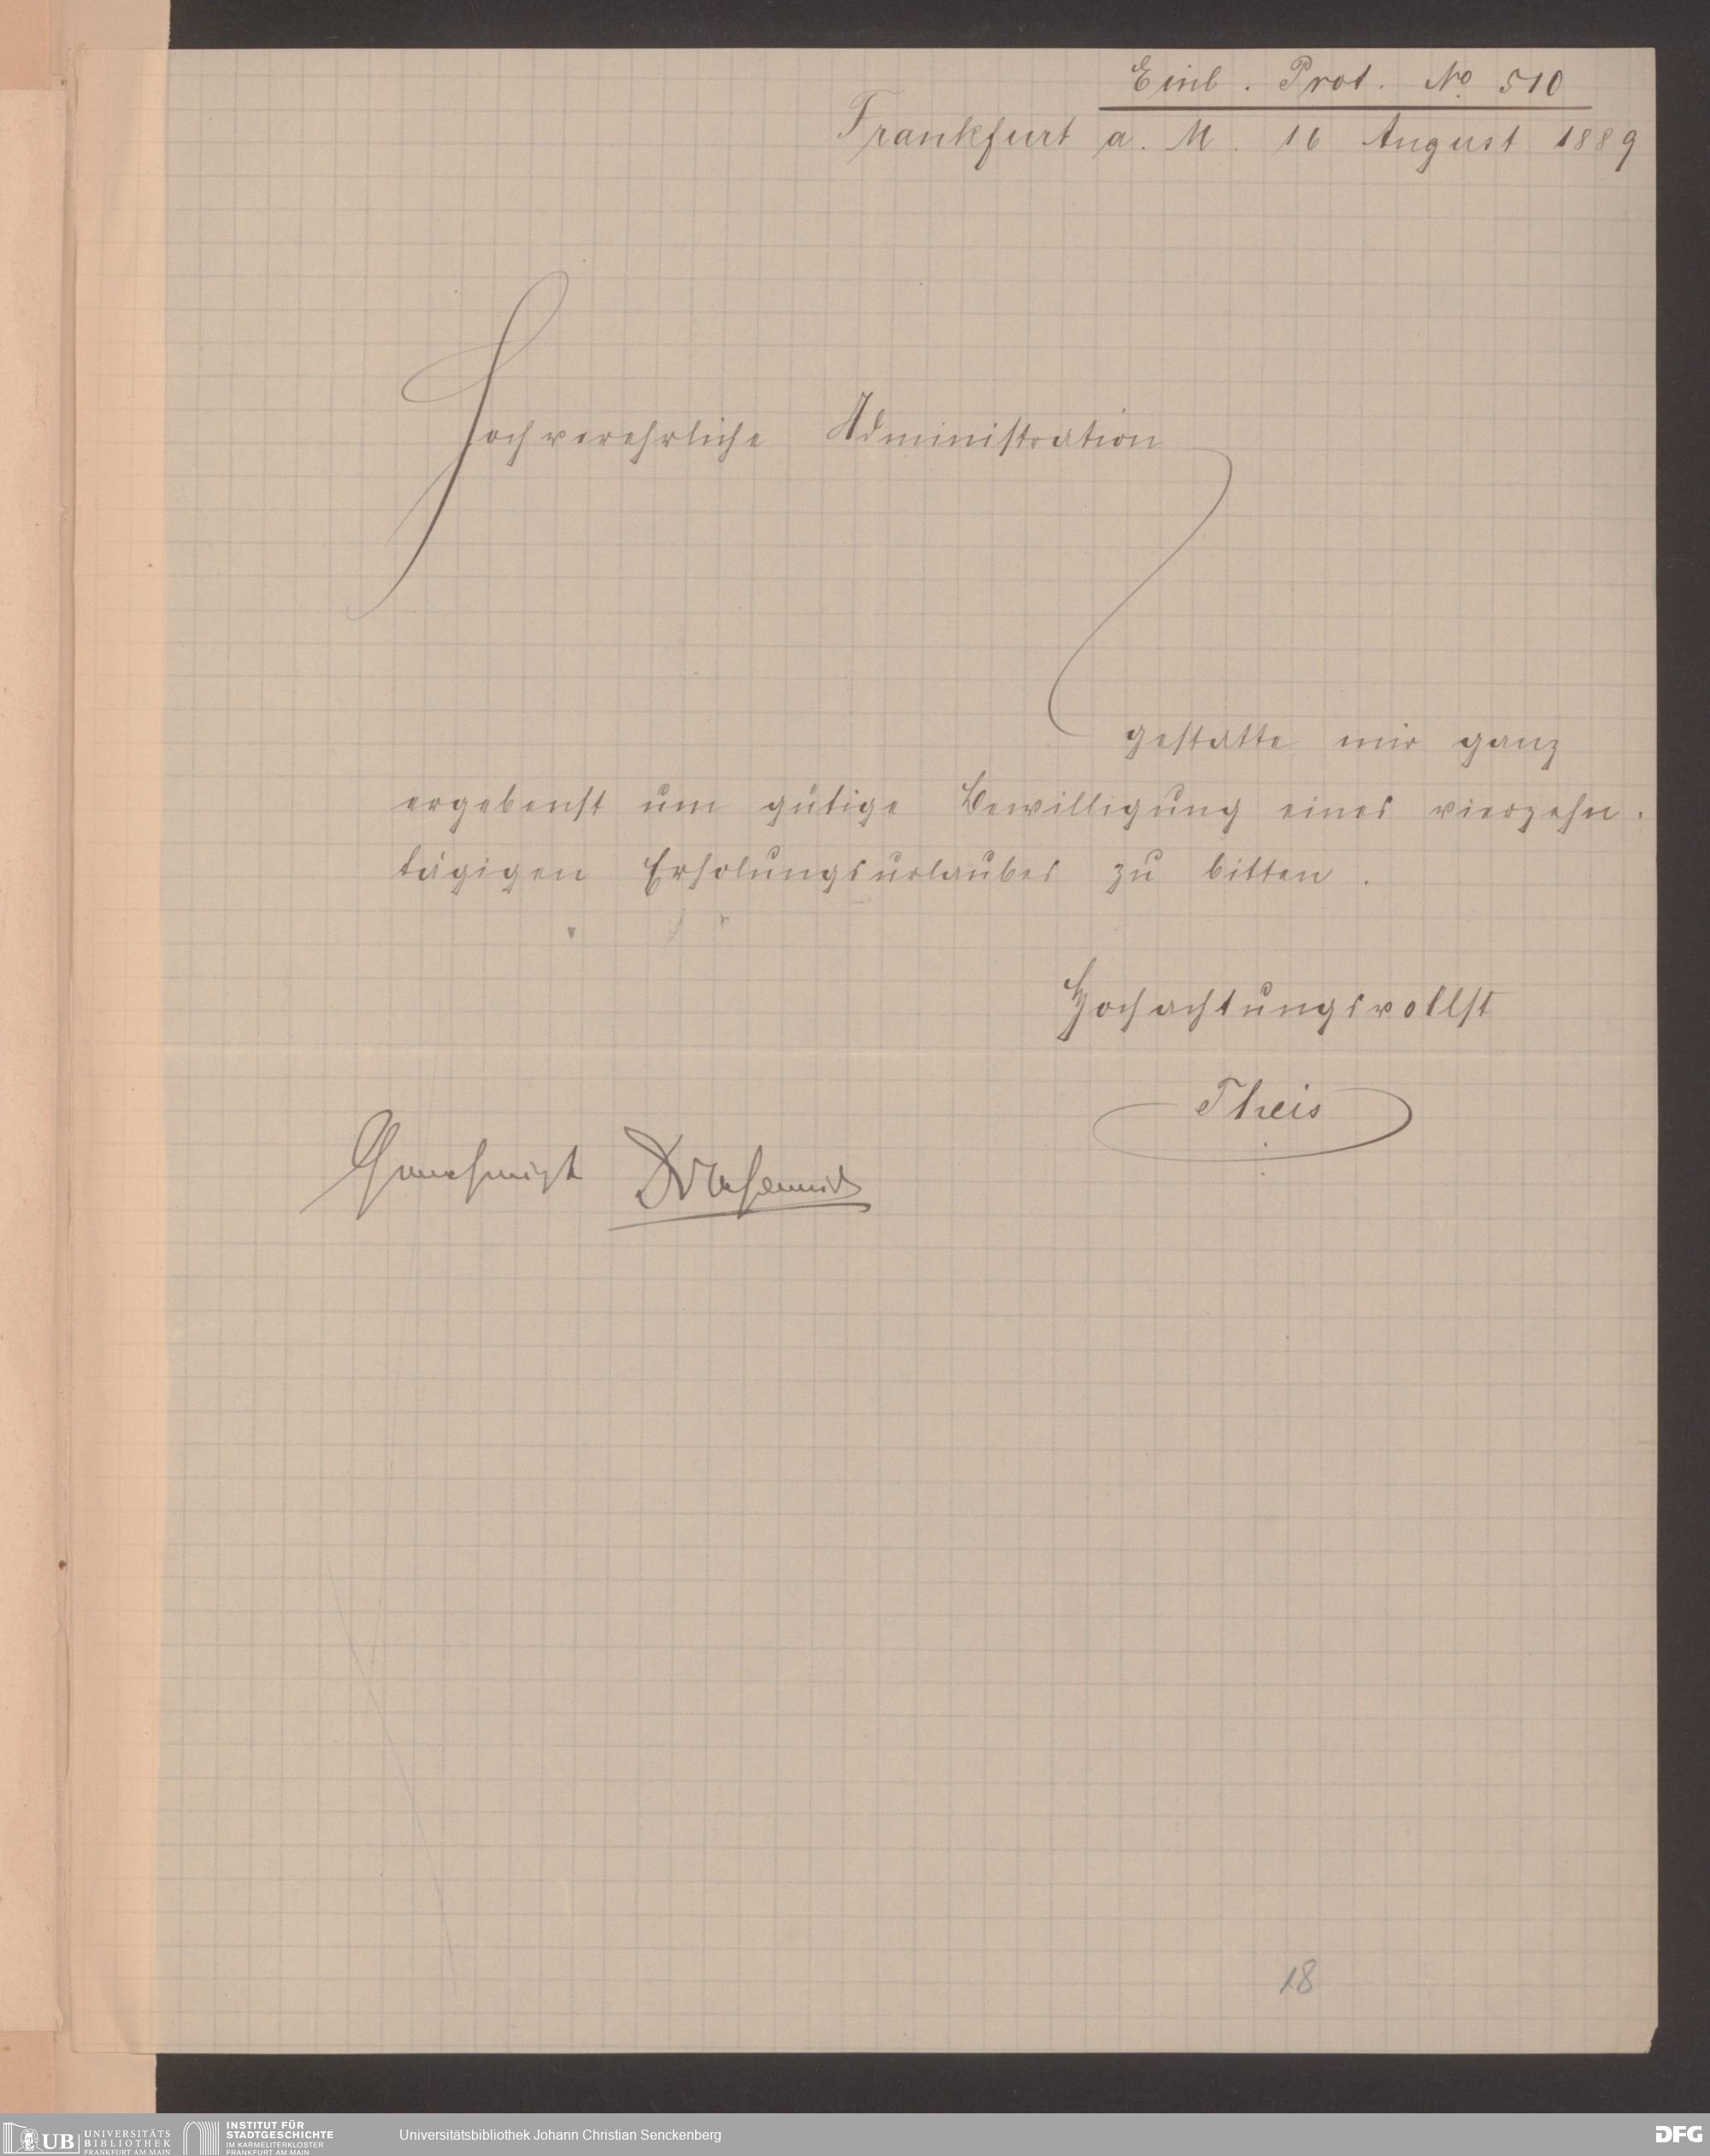 Einl. Prot. No 510
Frankfurt a. M. 16 August 1889
Hochverehrliche Administration
gestatte mir ganz
ergebenst um gütige Bewilligung eines vierzehn-
tägigen Erholungsurlaubes zu bitten.
Hochachtungsvollst
Theis
Genehmigt
18
UB UNIVERSITÄTS
BIBLIOTHEK
FRANKFURT AM MAIN
INSTITUT FÜR
STADTGESCHICHTE
IM KARMELITERKLOSTER
FRANKFURT AM MAIN
Universitätsbibliothek Johann Christian Senckenberg
DFG